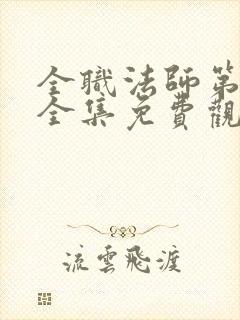 全職法師第
全集免費觀
流雲飛渡